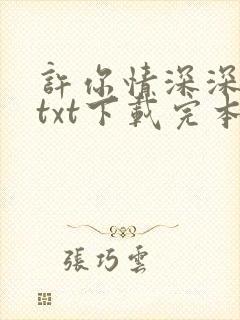 許你情深深
txt下載完本
張巧雲